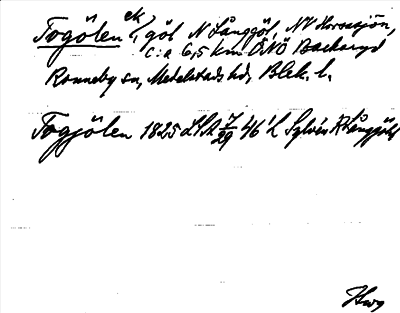 Togölen ek, göl N Långgöl, NV Horsasjön,
c:a 6,5 km ÖNÖ Backaryd
Ronneby sn, Medelstads hd, Blek. l.
Togjölen 1825 LSA 7/29 46 L Sylvén Långgöl